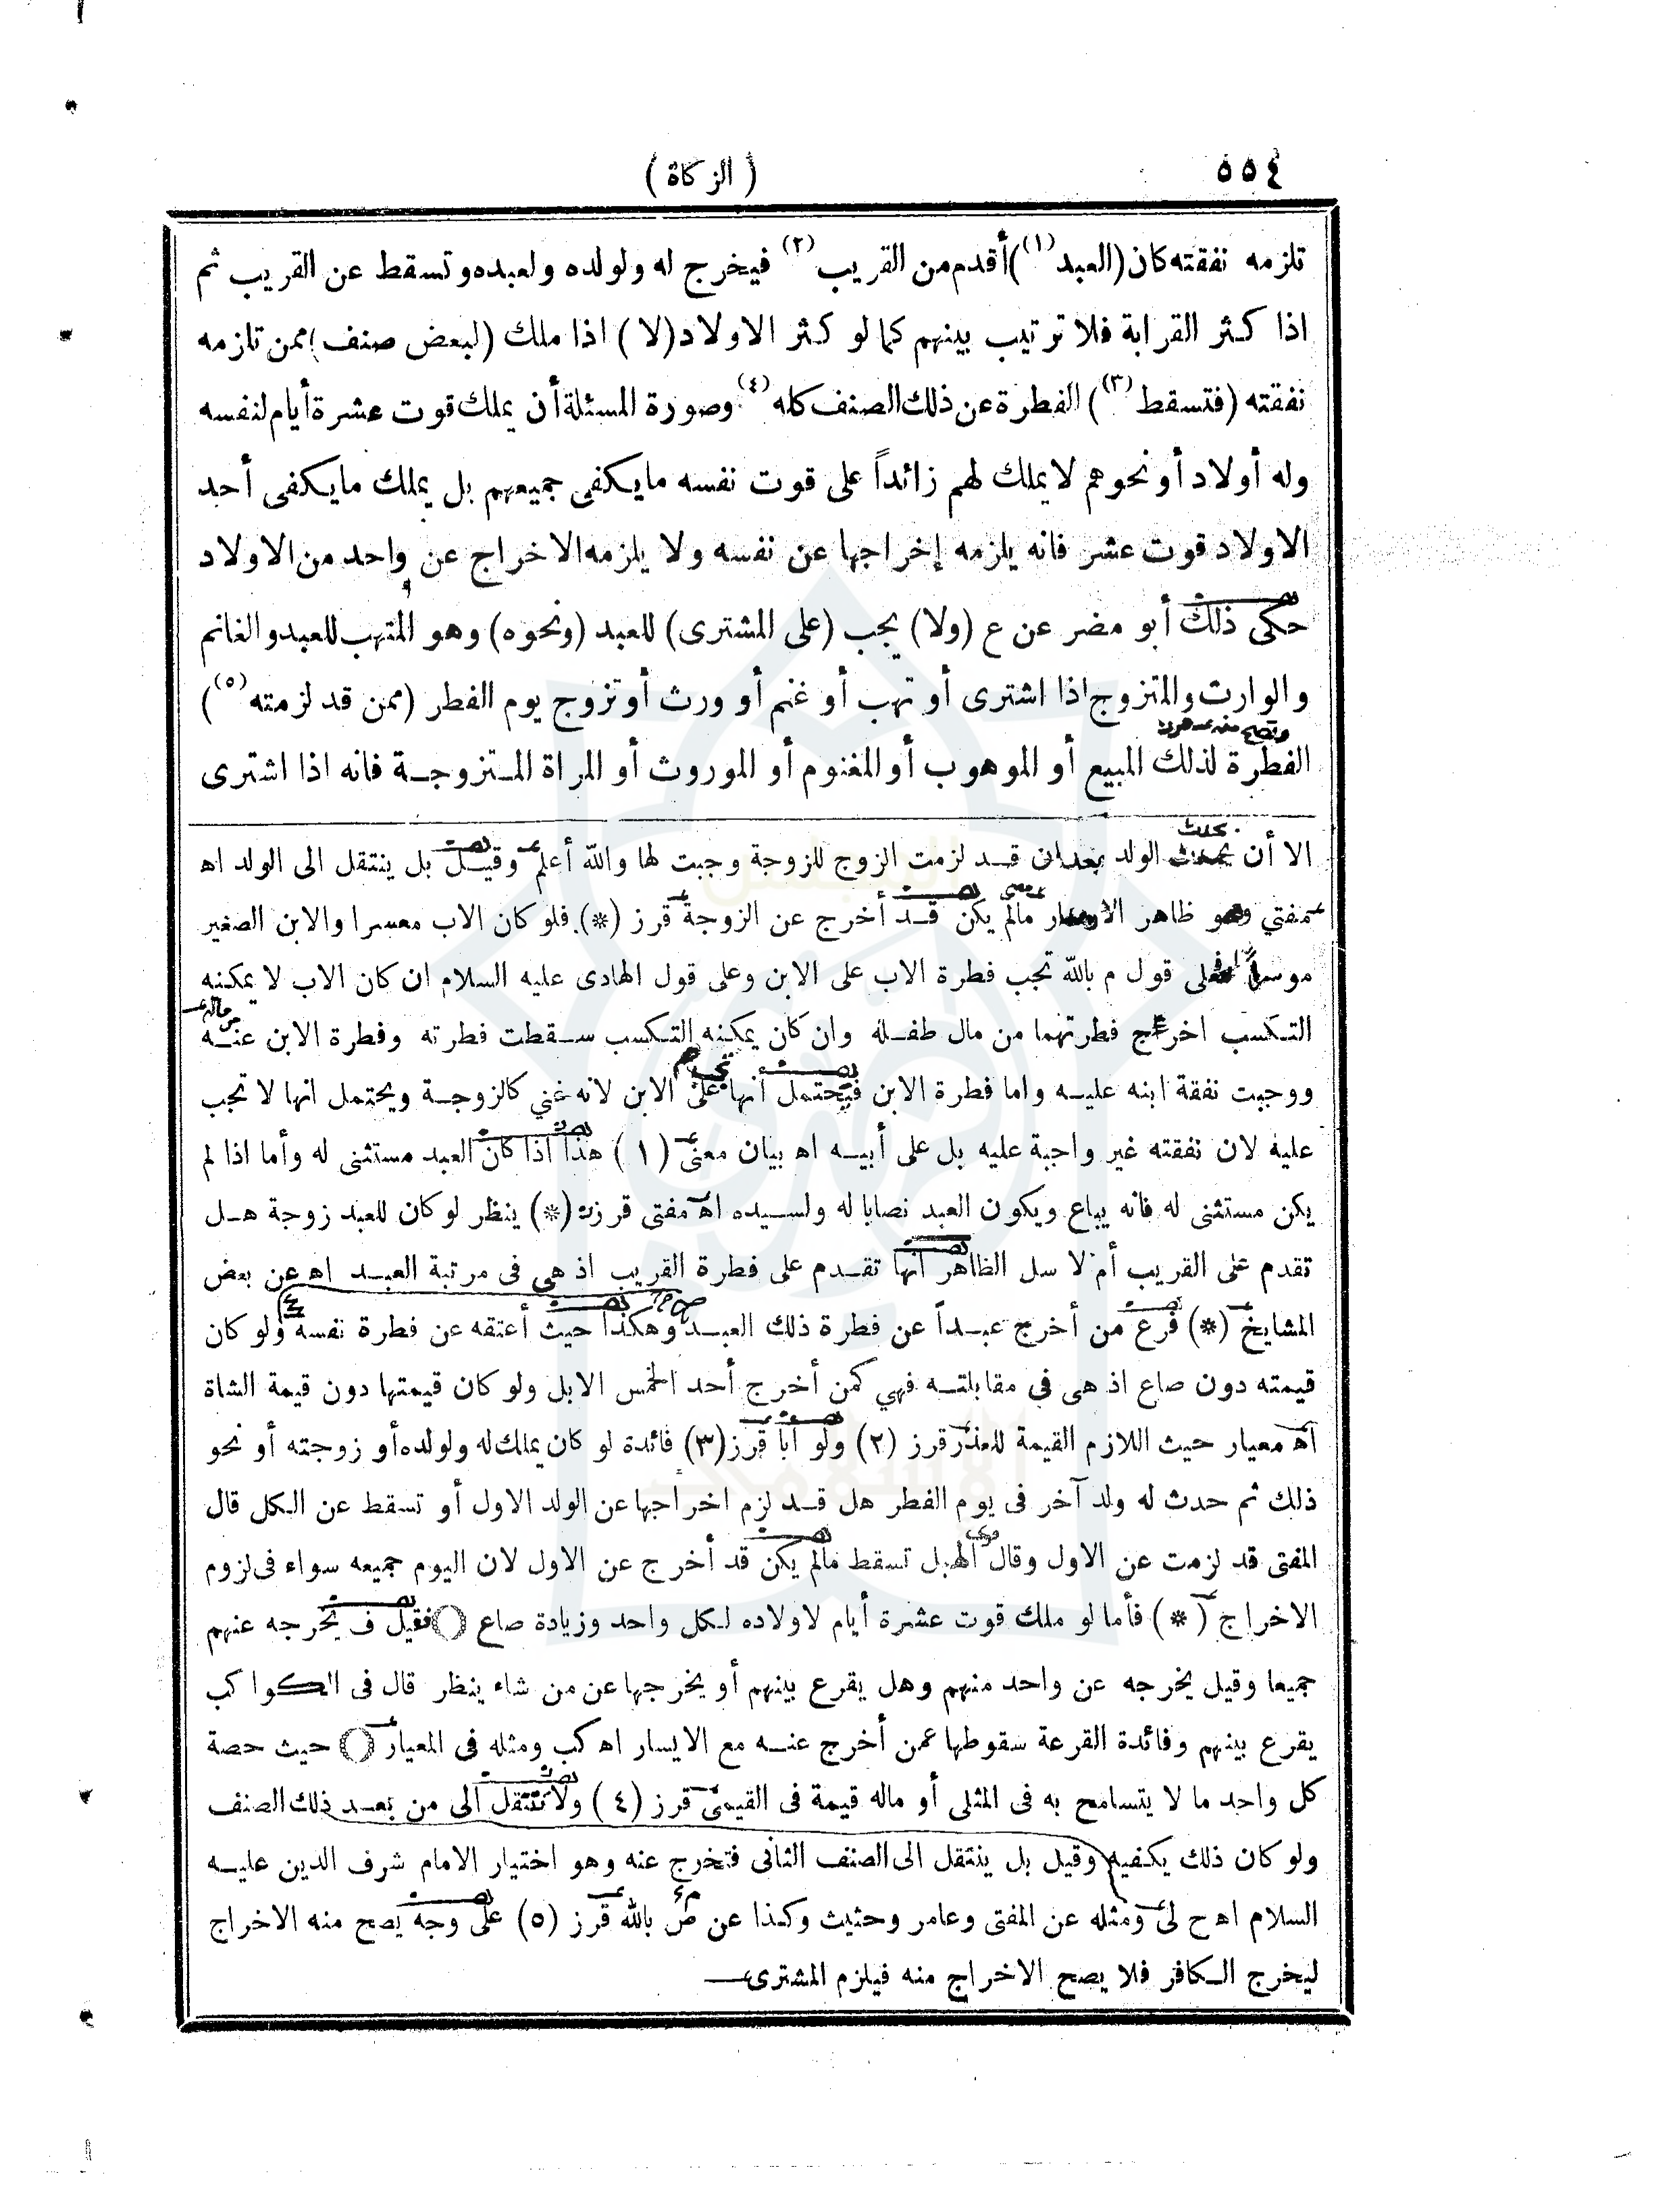 ٥٥٤
( الزكاة )
تلزمه نفقته كان (العبد (١)) أقدم من القريب (٢) فيخرج له ولولده ولعبده وتسقط عن القريب ثم
اذا كثر القرابة فلا ترتيب بينهم كما لو كثر الاولاد (لا) اذا ملك (لبعض صنف) ممن تلزمه
نفقته (فتسقط (٣)) الفطرة عن ذلك الصنف كله (٤) وصورة المسئلة أن يملك قوت عشرة أيام لنفسه
وله أولاد أو نحوهم لا يملك لهم زائداً على قوت نفسه ما يكفى جميعهم بل يملك ما يكفى أحد
الاولاد قوت عشر فانه يلزمه إخراجها عن نفسه ولا يلزمه الاخراج عن واحد من الاولاد
حكى ذلك أبو مضر عن ع (ولا) يجب (على المشترى) للعبد (ونحوه) وهو المتهب للعبد والغانم
والوارث والمتزوج اذا اشترى أو تهب أو غنم أو ورث أو تزوج يوم الفطر (ممن قد لزمته (٥))
الفطرة لذلك المبيع أو الموهوب أو المغنوم أو الموروث أو المراة المتزوجة فانه اذا اشترى
الا أن يحدث الولد بعد ان قد لزمت الزوج للزوجة وجبت لها والله أعلم وقيل بل ينتقل الى الولد اه
مفتي وهو ظاهر الازهار مالم يكن قد أخرج عن الزوجة قرز (*) فلو كان الاب معسرا والابن الصغير
موسراً فعلى قول م بالله تجب فطرة الاب على الابن وعلى قول الهادى عليه السلام ان كان الاب لا يمكنه
التكسب اخرج فطرتهما من مال طفله وان كان يمكنه التكسب سقطت فطرته وفطرة الابن عنه
ووجبت نفقة ابنه عليه واما فطرة الابن فيحتمل أنها على الابن لانه غني كالزوجة ويحتمل انها لا تجب
عليه لان نفقته غير واجبة عليه بل على أبيه اه بيان معنى (١) هذا اذا كان العبد مستثنى له وأما اذا لم
يكن مستثنى له فانه يباع ويكون العبد نصابا له ولسيده اه مفتى قرز (*) ينظر لو كان للعبد زوجة هل
تقدم على القريب أم لا سل الظاهر أنها تقدم على فطرة القريب اذ هي فى مرتبة العبد اه عن بعض
المشايخ (*) فرع من أخرج عبداً عن فطرة ذلك العبد وهكذا حيث أعتقه عن فطرة نفسه ولو كان
قيمته دون صاع اذ هى فى مقابلته فهي كمن أخرج أحد الخمس الابل ولو كان قيمتها دون قيمة الشاة
اه معيار حيث اللازم القيمة للعذر قرز (٢) ولو أبا قرز (٣) فائدة لو كان يملك له ولولده أو زوجته أو نحو
ذلك ثم حدث له ولد آخر فى يوم الفطر هل قد لزم اخراجها عن الولد الاول أو تسقط عن الكل قال
المفتى قد لزمت عن الاول وقال الهبل تسقط مالم يكن قد أخرج عن الاول لان اليوم جميعه سواء فى لزوم
الاخراج (*) فأما لو ملك قوت عشرة أيام لاولاده لكل واحد وزيادة صاع فقيل ف يخرجه عنهم
جميعا وقيل يخرجه عن واحد منهم وهل يقرع بينهم أو يخرجها عن من شاء ينظر قال فى الكواكب
يقرع بينهم وفائدة القرعة سقوطها عمن أخرج عنه مع الايسار اه كب ومثله فى المعيار حيث حصة
كل واحد ما لا يتسامح به فى المثلى أو ماله قيمة فى القيمى قرز (٤) ولا تنتقل الى من بعد ذلك الصنف
ولو كان ذلك يكفيه وقيل بل ينتقل الى الصنف الثانى فتخرج عنه وهو اختيار الامام شرف الدين عليه
السلام اه ح لى ومثله عن المفتى وعامر وحثيث وكذا عن ص بالله قرز (٥) على وجه يصح منه الاخراج
ليخرج الكافر فلا يصح الاخراج منه فيلزم المشترى